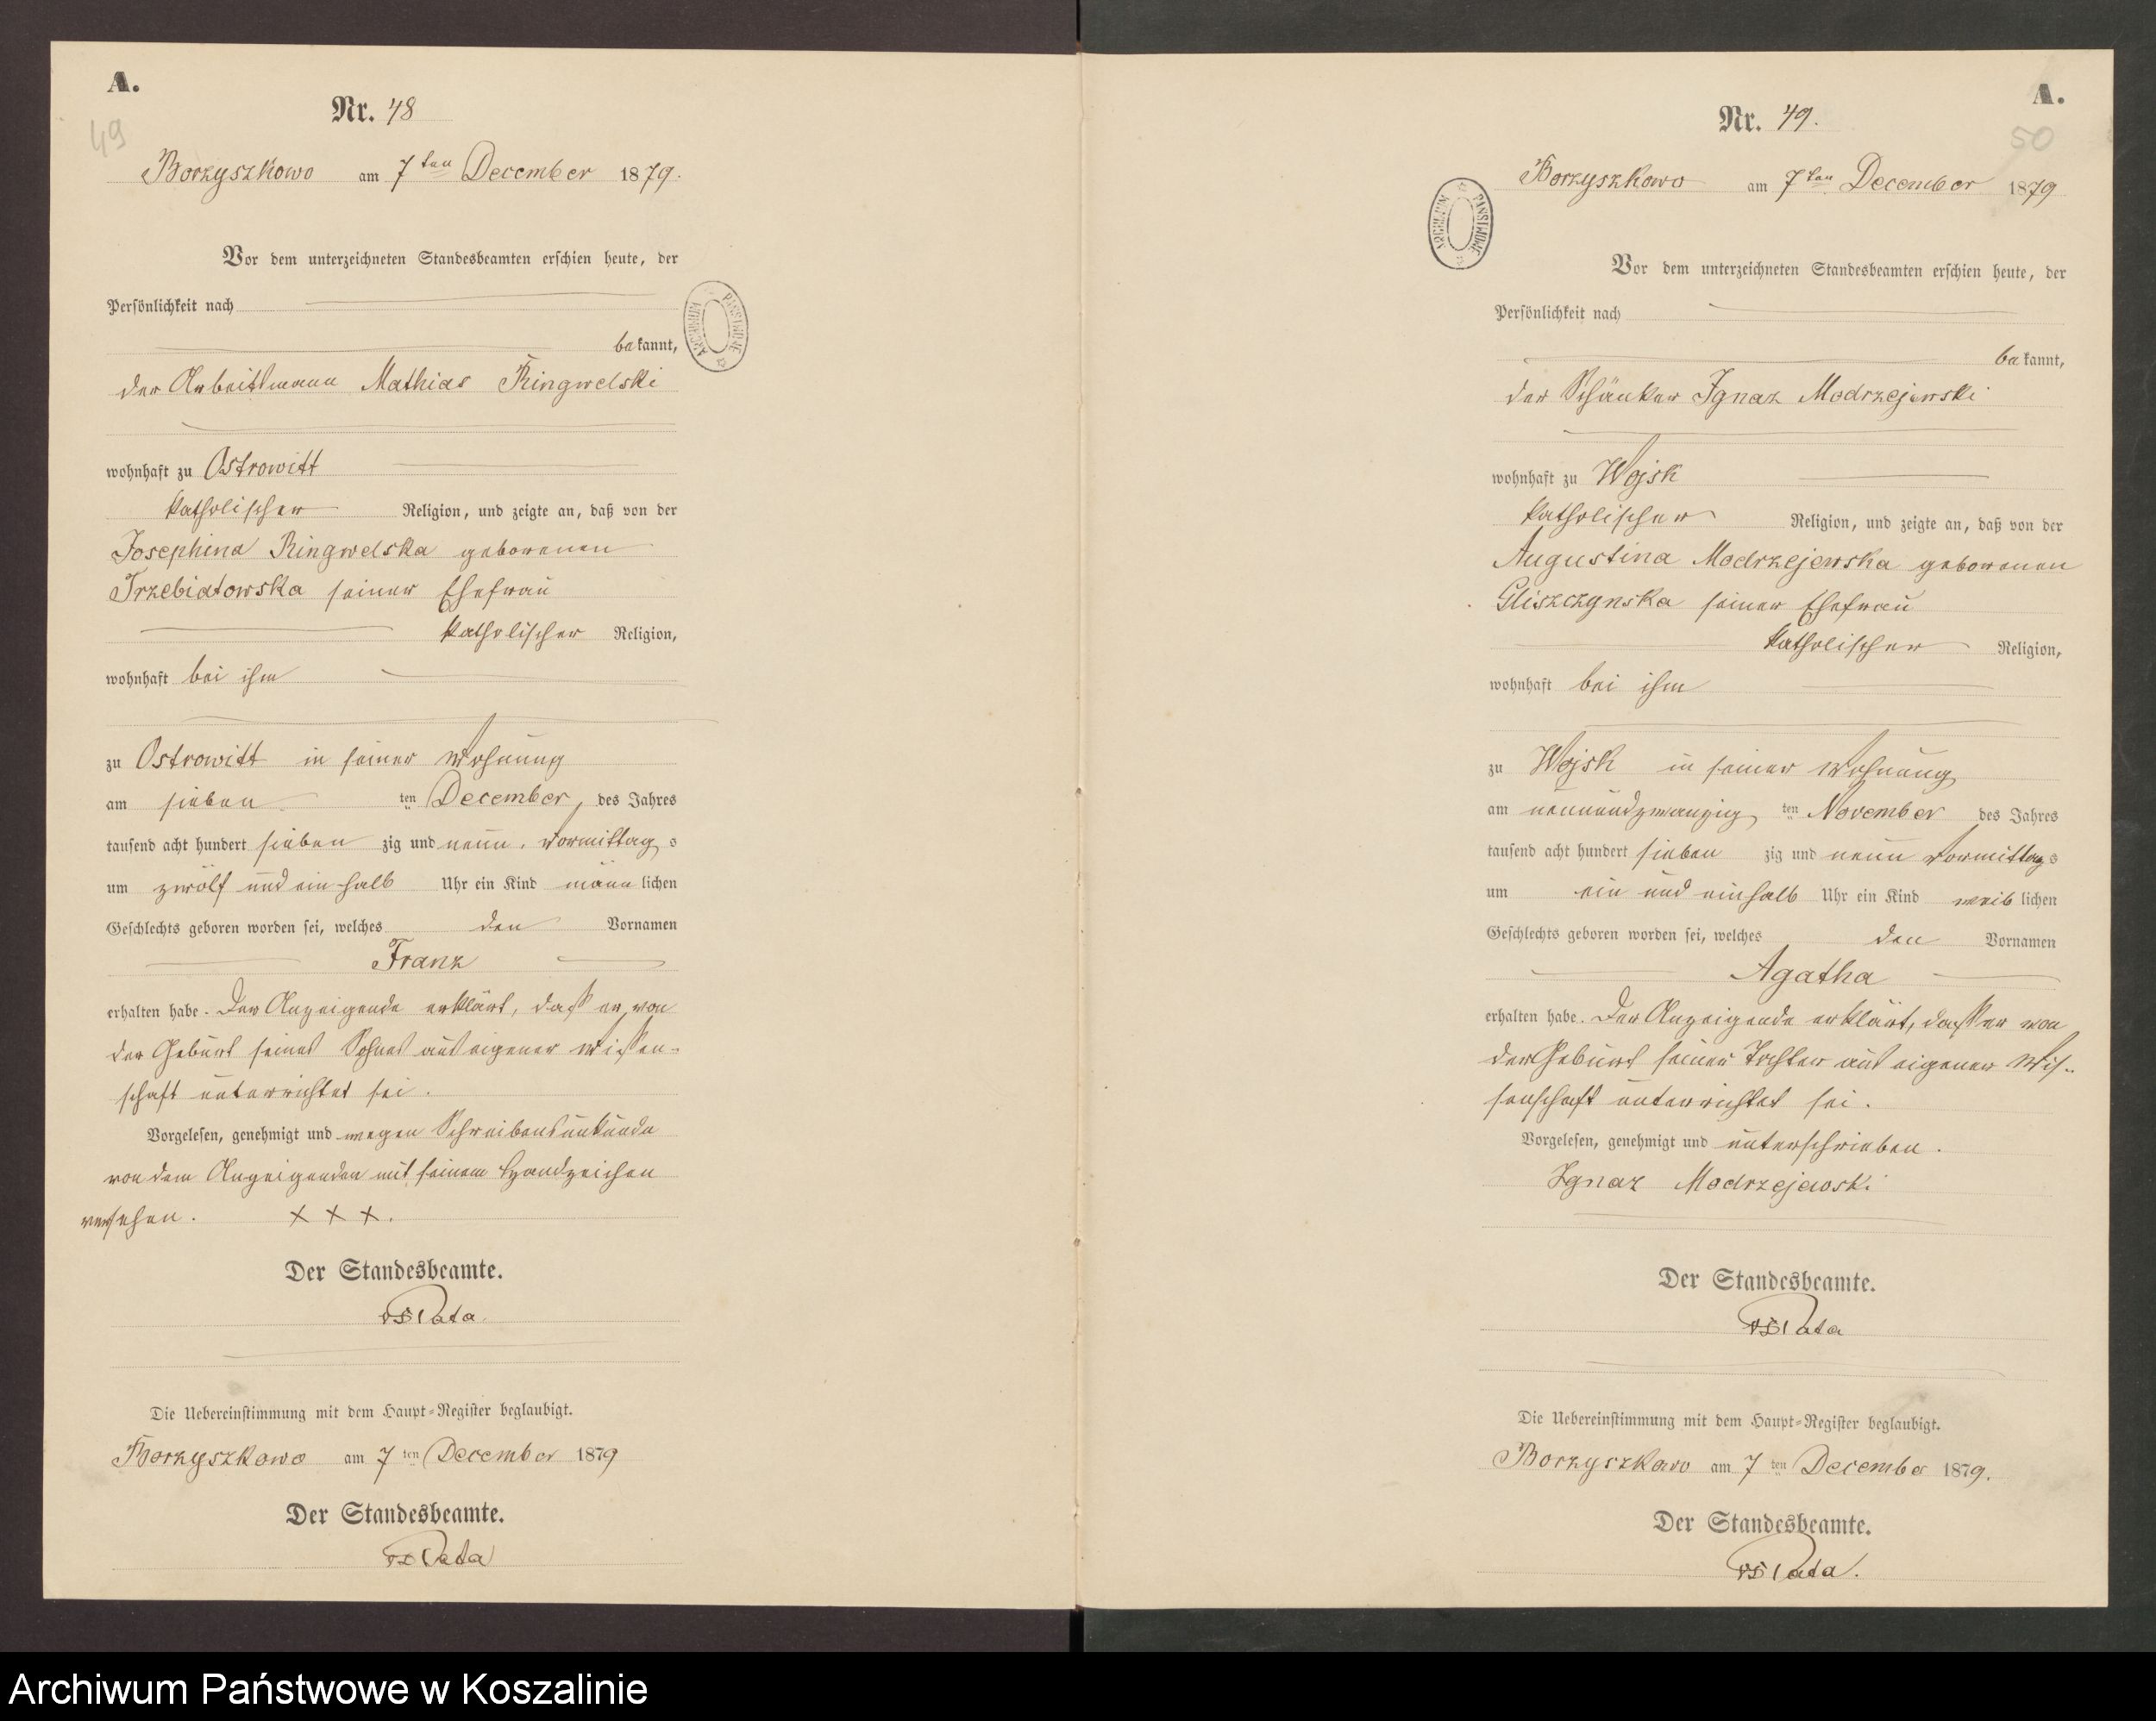 A.
Nr. 48
49
Borzyszkowo am 7ten December 1879.
Vor dem unterzeichneten Standesbeamten erschien heute, der
Persönlichkeit nach
bekannt,
der Arbeitsmann Mathias Ringwelski
wohnhaft zu Ostrowitt
katholischer Religion, und zeigte an, daß von der
Josephina Ringwelska geborenen
Trzebiatowska seiner Ehefrau
katholischer Religion,
wohnhaft bei ihm
zu Ostrowitt in seiner Wohnung
am sieben ten December, des Jahres
tausend acht hundert sieben zig und neun, Vormittags
um zwölf und ein halb Uhr ein Kind männlichen
Geschlechts geboren worden sei, welches den Vornamen
Franz
erhalten habe. Der Anzeigende erklärt, daß er von
der Geburt seines Sohnes aus eigener Wissen-
schaft unterrichtet sei.
Vorgelesen, genehmigt und wegen Schreibensunkunde
von dem Anzeigenden mit seinem Handzeichen
versehen. X X X.
Der Standesbeamte.
Die Uebereinstimmung mit dem Haupt-Register beglaubigt.
Borzyszkowo am 7ten December 1879
Der Standesbeamte.
ARCHIWUM PAŃSTWOWE
A.
Nr. 49.
50
Borzyszkowo am 7ten December 1879
ARCHIWUM PAŃSTWOWE
Vor dem unterzeichneten Standesbeamten erschien heute, der
Persönlichkeit nach
bekannt,
der Schänker Ignaz Modrzejewski
wohnhaft zu Wojsk
katholischer Religion, und zeigte an, daß von der
Augustina Modrzejewska geborenen
Gliszczynska seiner Ehefrau
katholischer Religion,
wohnhaft bei ihm
zu Wojsk in seiner Wohnung
am neunundzwanzig ten November des Jahres
tausend acht hundert sieben zig und neun Vormittags
um ein und einhalb Uhr ein Kind weiblichen
Geschlechts geboren worden sei, welches den Vornamen
Agatha
erhalten habe. Der Anzeigende erklärt, daß er von
der Geburt seiner Tochter aus eigener Wis-
senschaft unterrichtet sei.
Vorgelesen, genehmigt und unterschrieben.
Ignaz Modrzejewski
Der Standesbeamte.
Die Uebereinstimmung mit dem Haupt-Register beglaubigt.
Borzyszkowo am 7ten December 1879.
Der Standesbeamte.
Archiwum Państwowe w Koszalinie